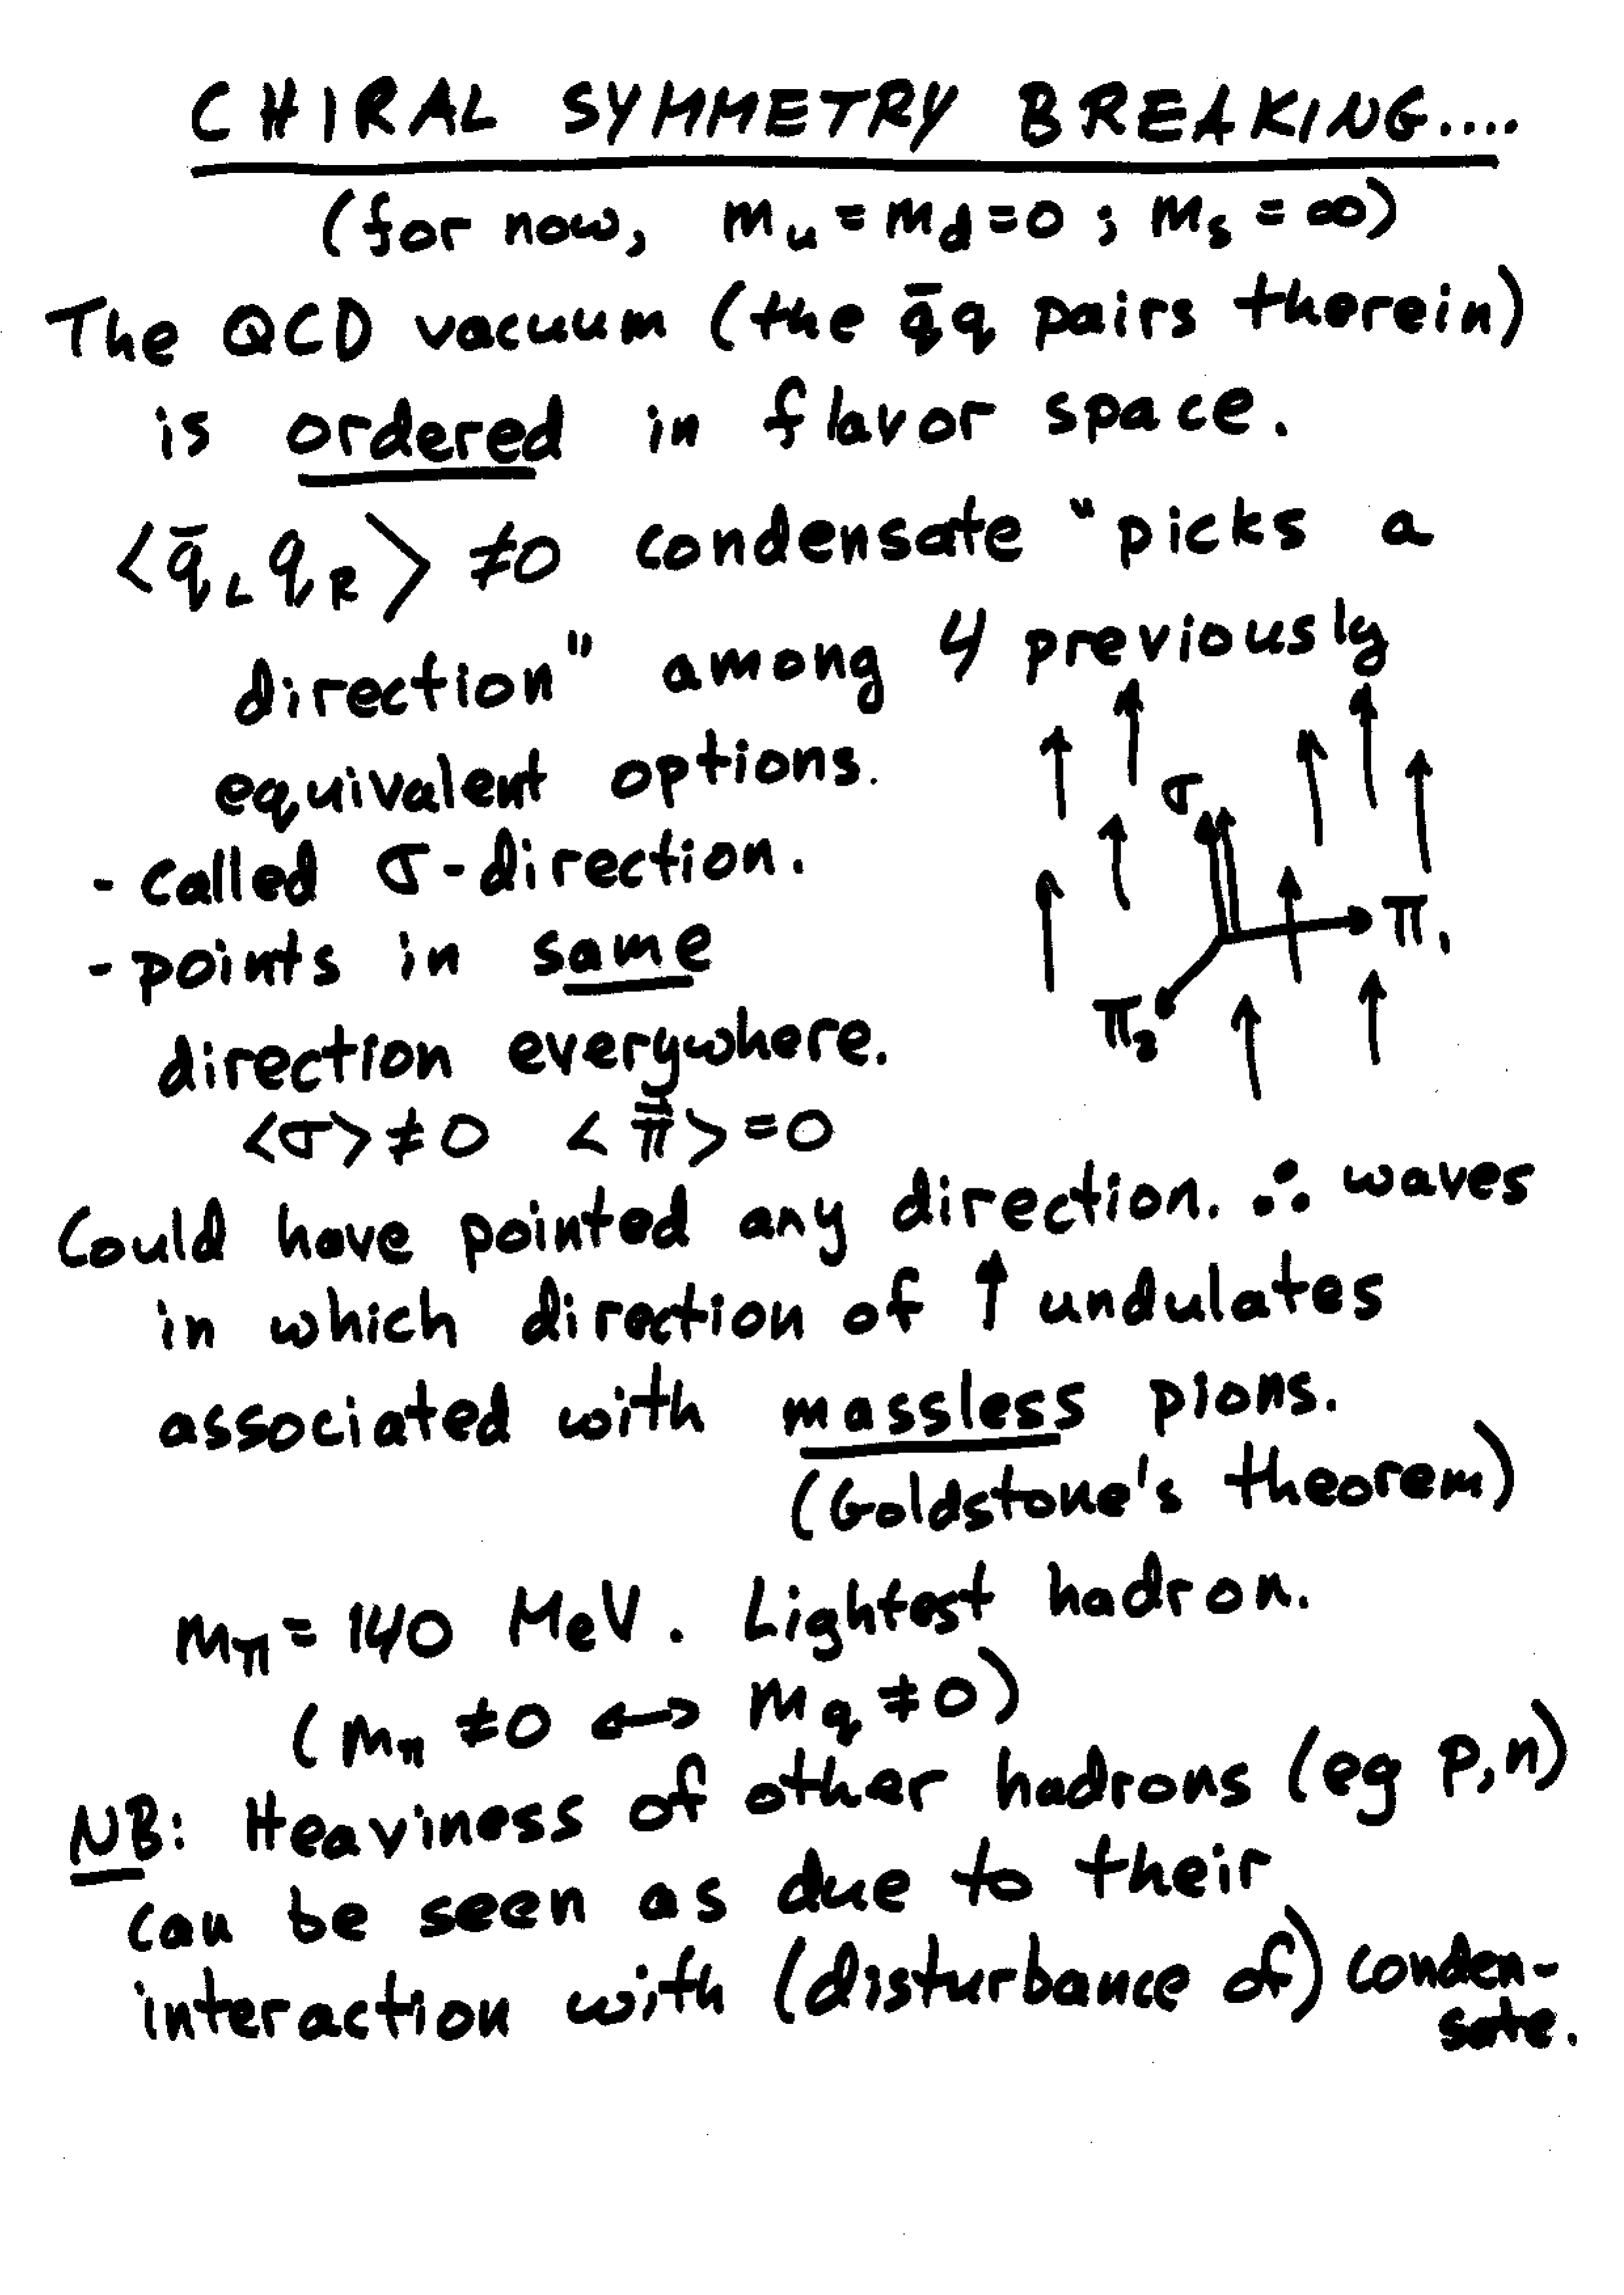 CHIRAL SYMMETRY BREAKING....
(for now, m_u = m_d = 0 ; m_s = ∞)
The QCD vacuum (the q̄q pairs therein)
is ordered in flavor space.
<q̄_L q_R> ≠0 condensate "picks a
direction" among 4 previously
equivalent options.
- called σ-direction.
- points in same
direction everywhere.
σ
π₁
π₂
<σ>≠0 <π⃗>=0
Could have pointed any direction. ∴ waves
in which direction of ↑ undulates
associated with massless pions.
(Goldstone's theorem)
m_π = 140 MeV. Lightest hadron.
(m_π ≠0 ↔ m_q ≠0)
NB: Heaviness of other hadrons (eg p,n)
can be seen as due to their
interaction with (disturbance of) conden-
sate.